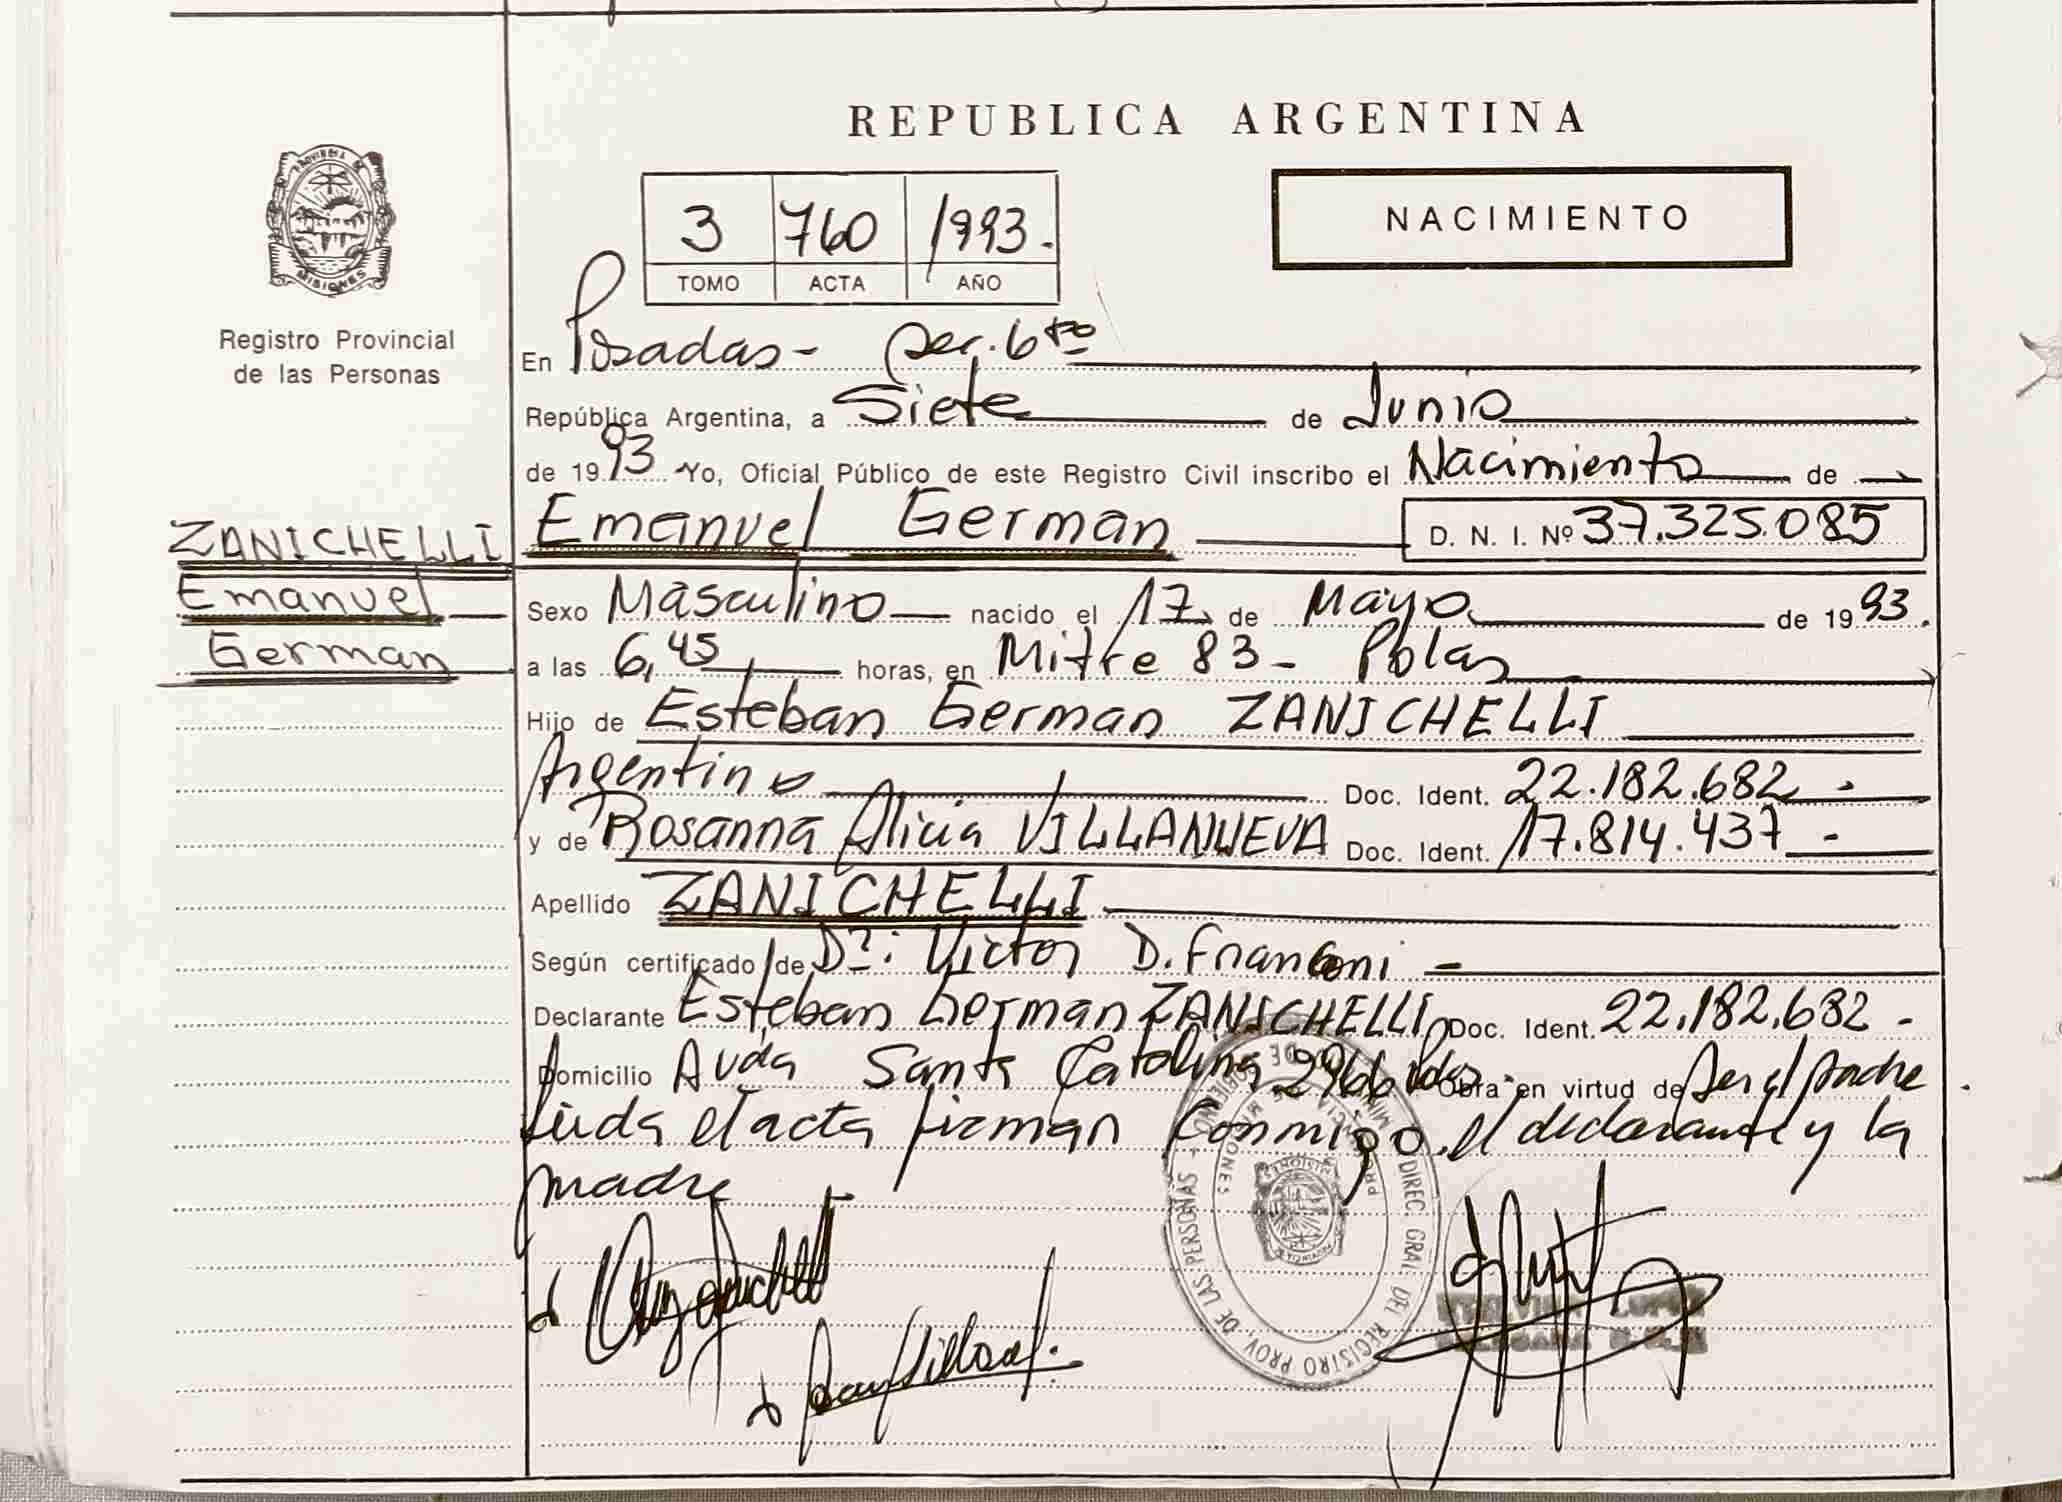 REPUBLICA ARGENTINA
NACIMIENTO
3 760 1993.
TOMO ACTA AÑO
Registro Provincial
de las Personas
En Posadas - Sec. 6ta
República Argentina, a Siete de Junio
de 1993 Yo, Oficial Público de este Registro Civil inscribo el Nacimiento de
ZANICHELLI
Emanuel
German
Emanuel German D. N. I. Nº 37.325.085
Sexo Masculino nacido el 17 de Mayo de 1993.
a las 6,45 horas, en Mitre 83 - Pdas
Hijo de Esteban German ZANICHELLI
Argentino Doc. Ident. 22.182.682 -
y de Rosanna Alicia VILLANUEVA Doc. Ident. 17.814.437 -
Apellido ZANICHELLI
Según certificado de Dr: Victor D. Franconi -
Declarante Esteban German ZANICHELLI Doc. Ident. 22.182.682 -
Domicilio Avda Santa Catalina 2966 Pdas. Obra en virtud de Ser el padre.
Leida el acta firman conmigo, el declarante y la
madre
PROVINCIA DE MISIONES
DIREC. GRAL. DEL REGISTRO PROV. DE LAS PERSONAS